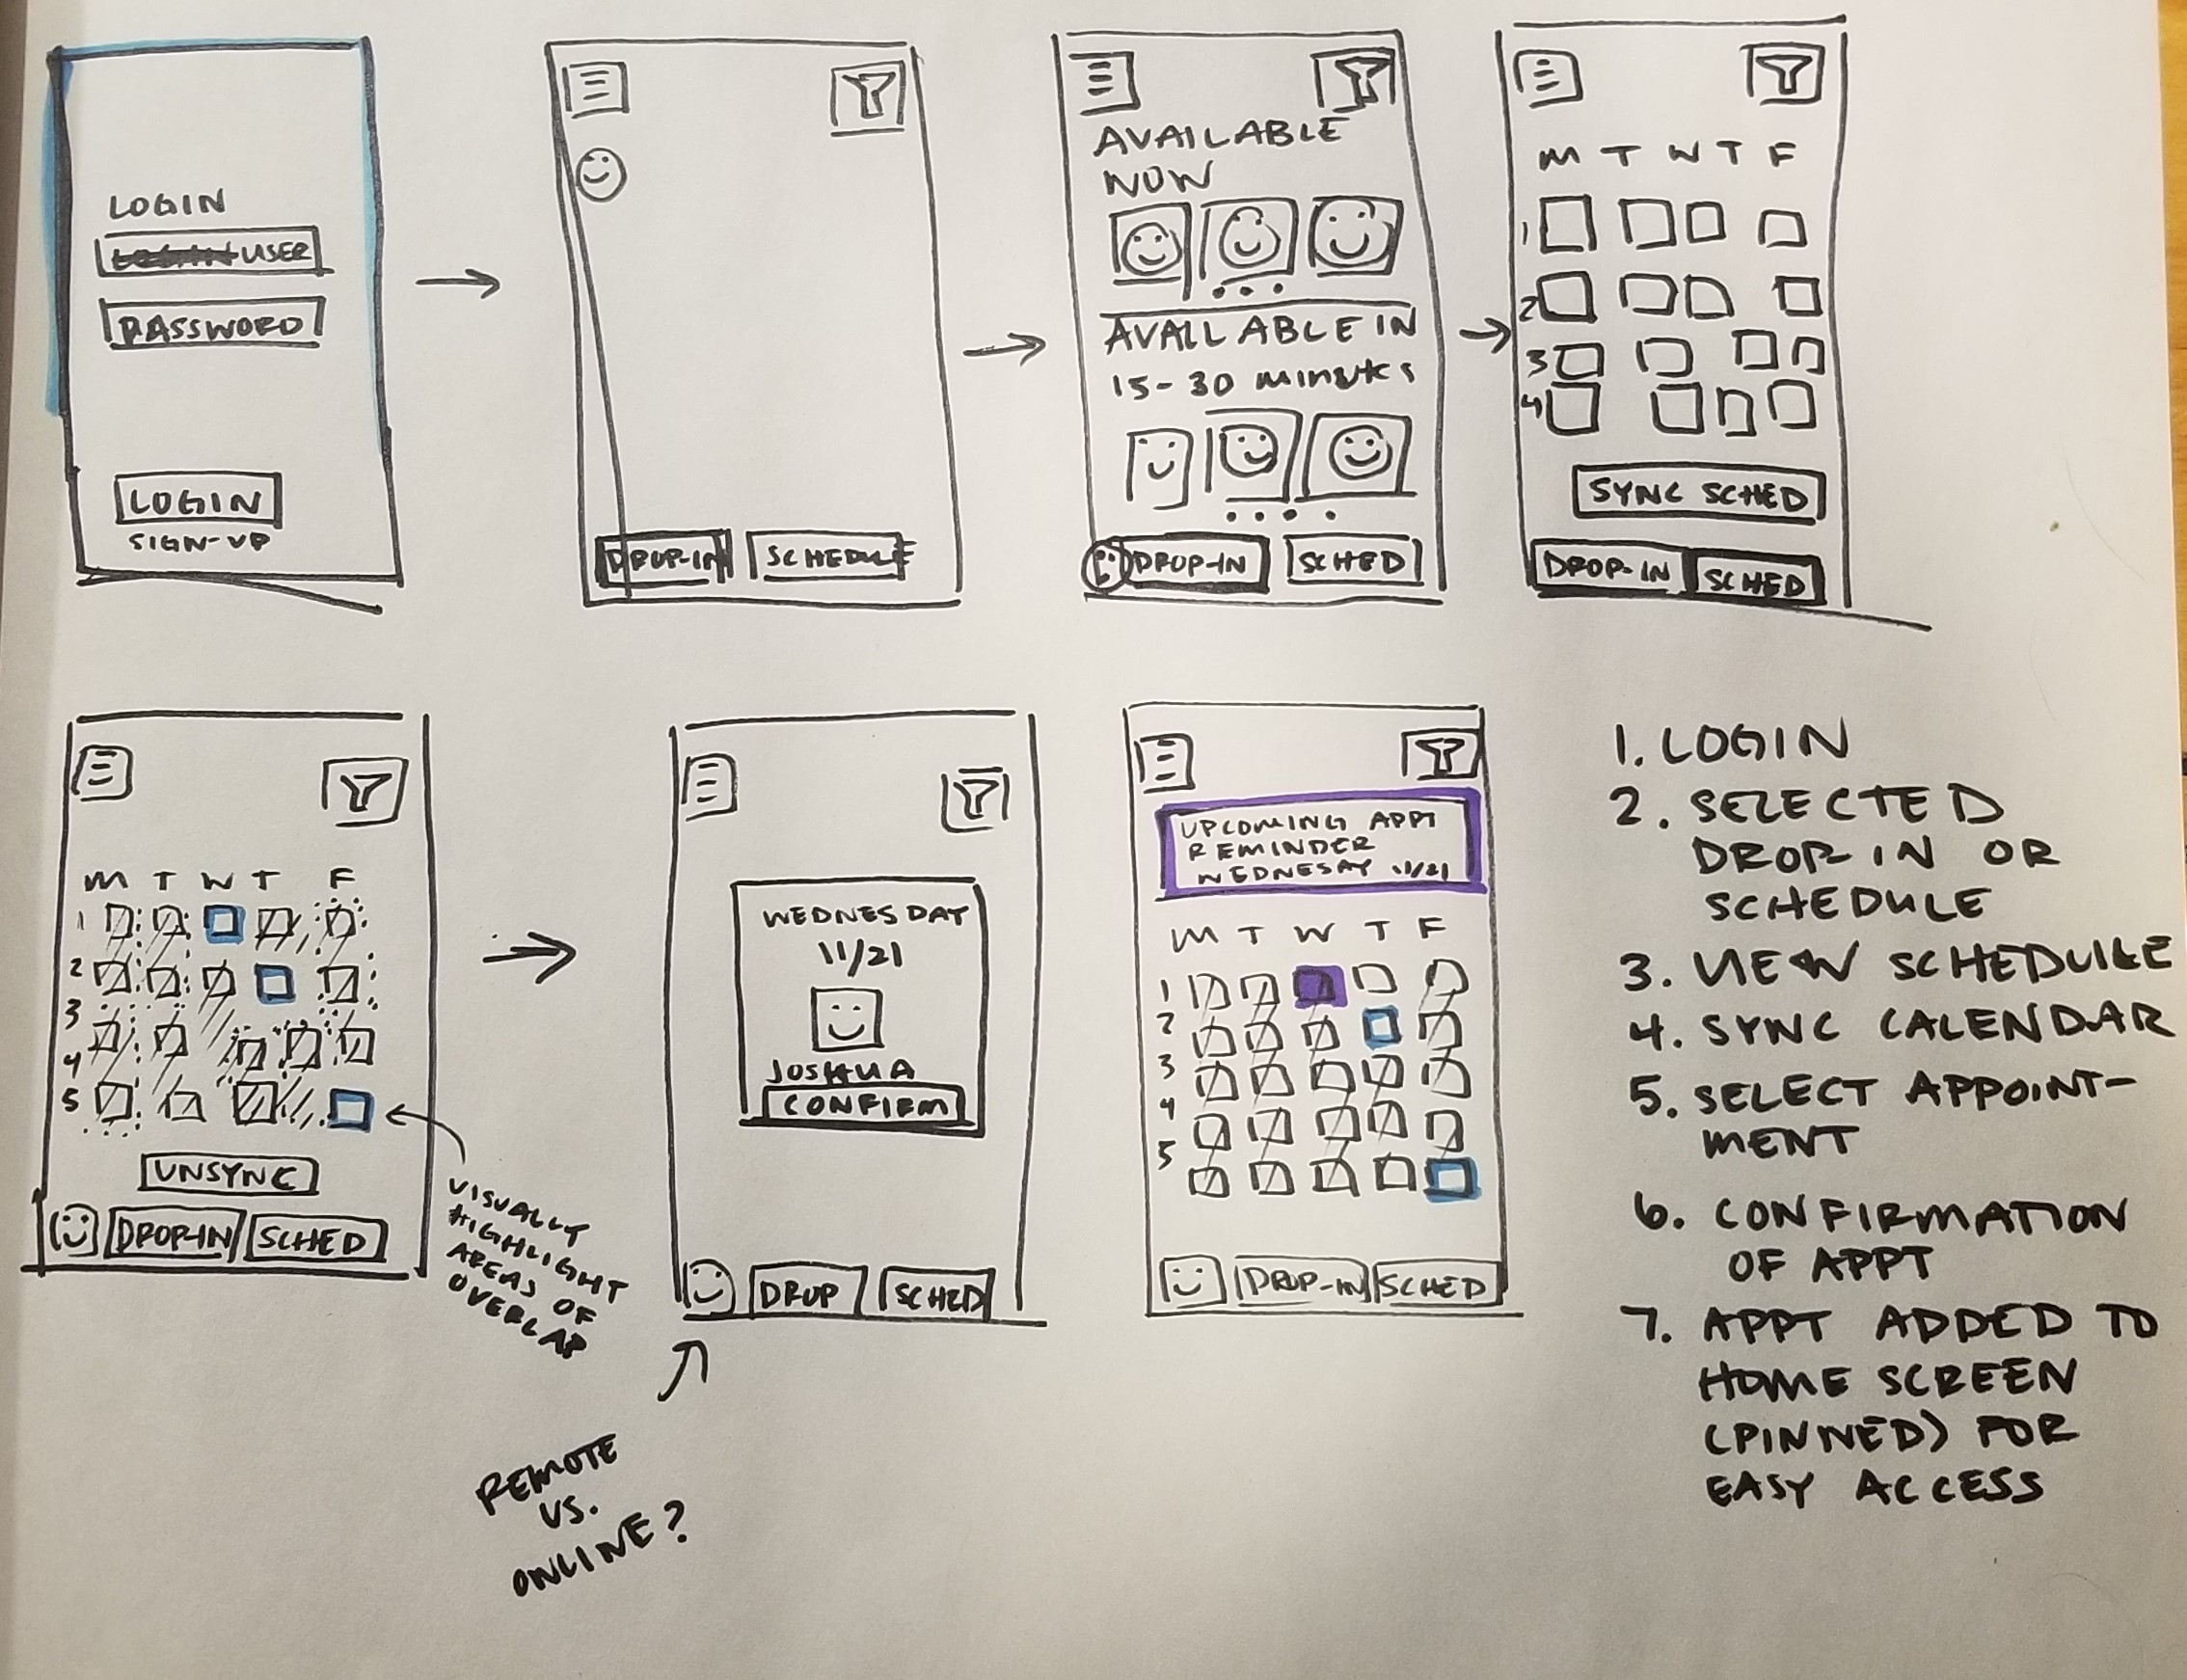 LOGIN
USER
PASSWORD
LOGIN
SIGN-UP
DROP-IN
SCHEDULE
AVAILABLE
NOW
AVAILABLE IN
15-30 minutes
DROP-IN
SCHED
M T W T F
1
2
3
4
SYNC SCHED
DROP-IN
SCHED
M T W T F
1
2
3
4
5
UNSYNC
DROP-IN
SCHED
VISUALLY
HIGHLIGHT
AREAS OF
OVERLAP
WEDNESDAY
11/21
JOSHUA
CONFIRM
DROP
SCHED
REMOTE
VS.
ONLINE?
UPCOMING APPT
REMINDER
WEDNESAY 11/21
M T W T F
1
2
3
4
5
DROP-IN
SCHED
1. LOGIN
2. SELECTED
DROP-IN OR
SCHEDULE
3. VIEW SCHEDULE
4. SYNC CALENDAR
5. SELECT APPOINT-
MENT
6. CONFIRMATION
OF APPT
7. APPT ADDED TO
HOME SCREEN
(PINNED) FOR
EASY ACCESS